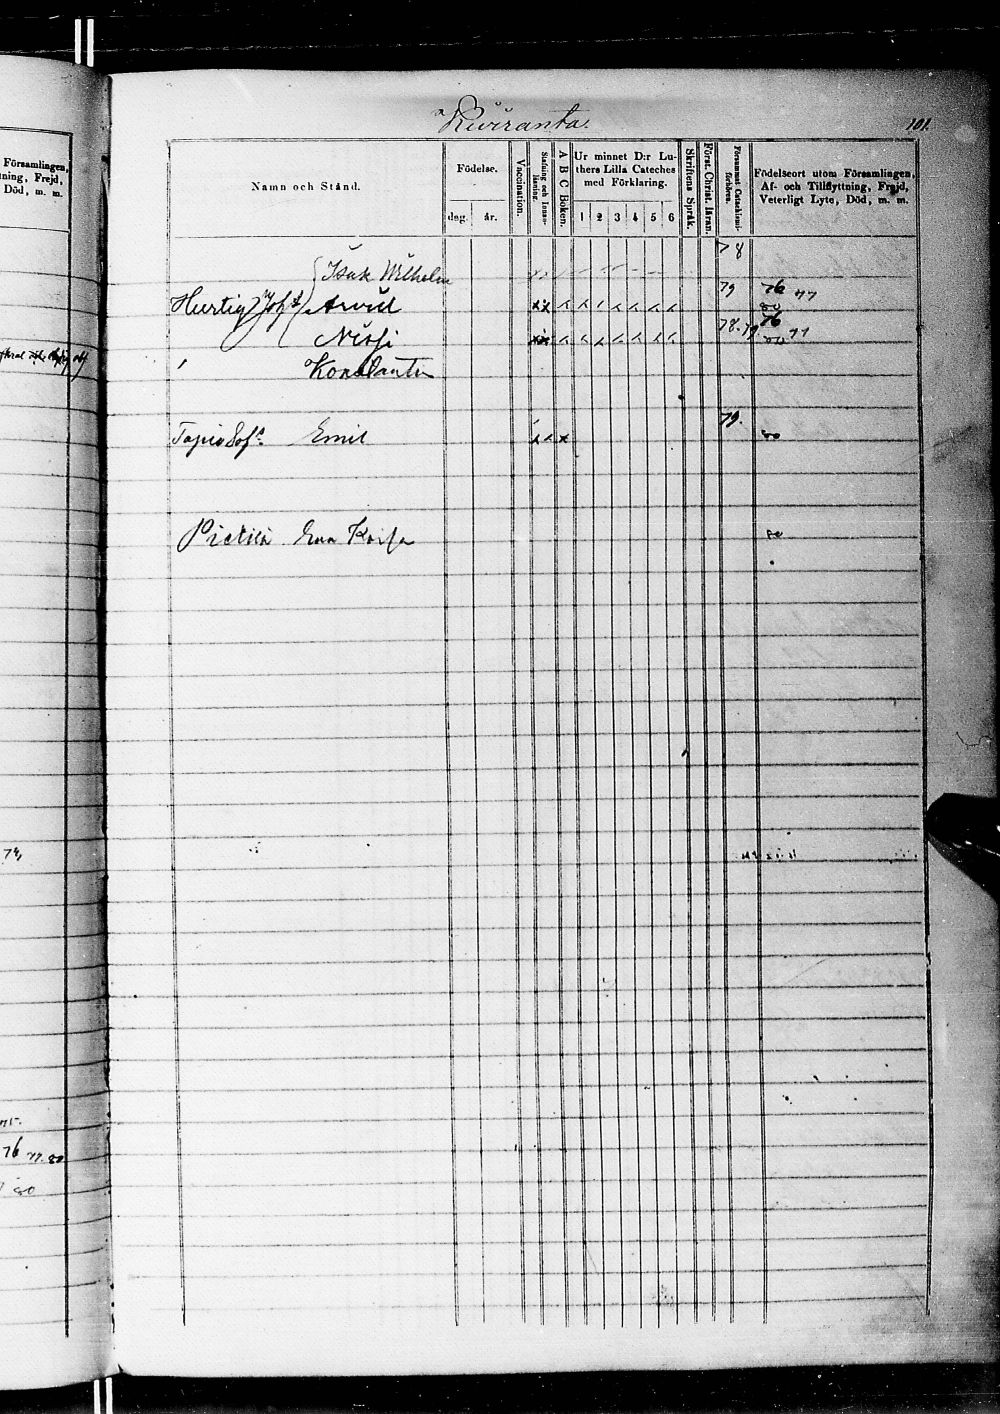 Församlingen,
ning, Frejd,
Död, m. m.
73,
75.
76 77. 80
80
Kiviranta.
101.
Namn och Stånd.
Födelse.
dag.
år.
Vaccination.
Stafning och Innanläsning.
A B C Boken.
Ur minnet D:r Lu-
thers Lilla Cateches
med Förklaring.
1 2 3 4 5 6
Skriftens Språk.
Först. Christ. läran.
Försummat Catechismi-
förhören.
Födelseort utom Församlingen,
Af- och Tillflyttning, Frejd,
Veterligt Lyte, Död, m. m.
78
Isak Wilhelm
Hurtig Arvid 79 76 77 80
78. 79 76 77 80
Konstantin
79.
Emil 80
Pietilä Eva Kaisa 80